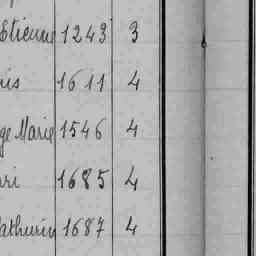 Etienne 1243 3
nis 1611 4
ge Marie 1546 4
ari 1685 4
athurin 1687 4